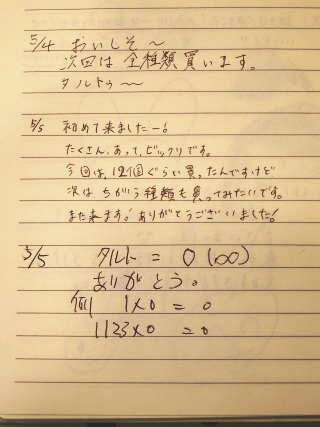 5/4 おいしそ〜
次回は全種類買います。
タルトゥ〜〜
5/5 初めて来ましたー!
たくさん、あって、ビックリです。
今回は、12個ぐらい買ったんですけど
次はちがう種類も買ってみたいです。
また来ます!ありがとうございました!
5/5 タルト = 0 (00)
ありがとう。
例 1×0 = 0
1123×0 = 0